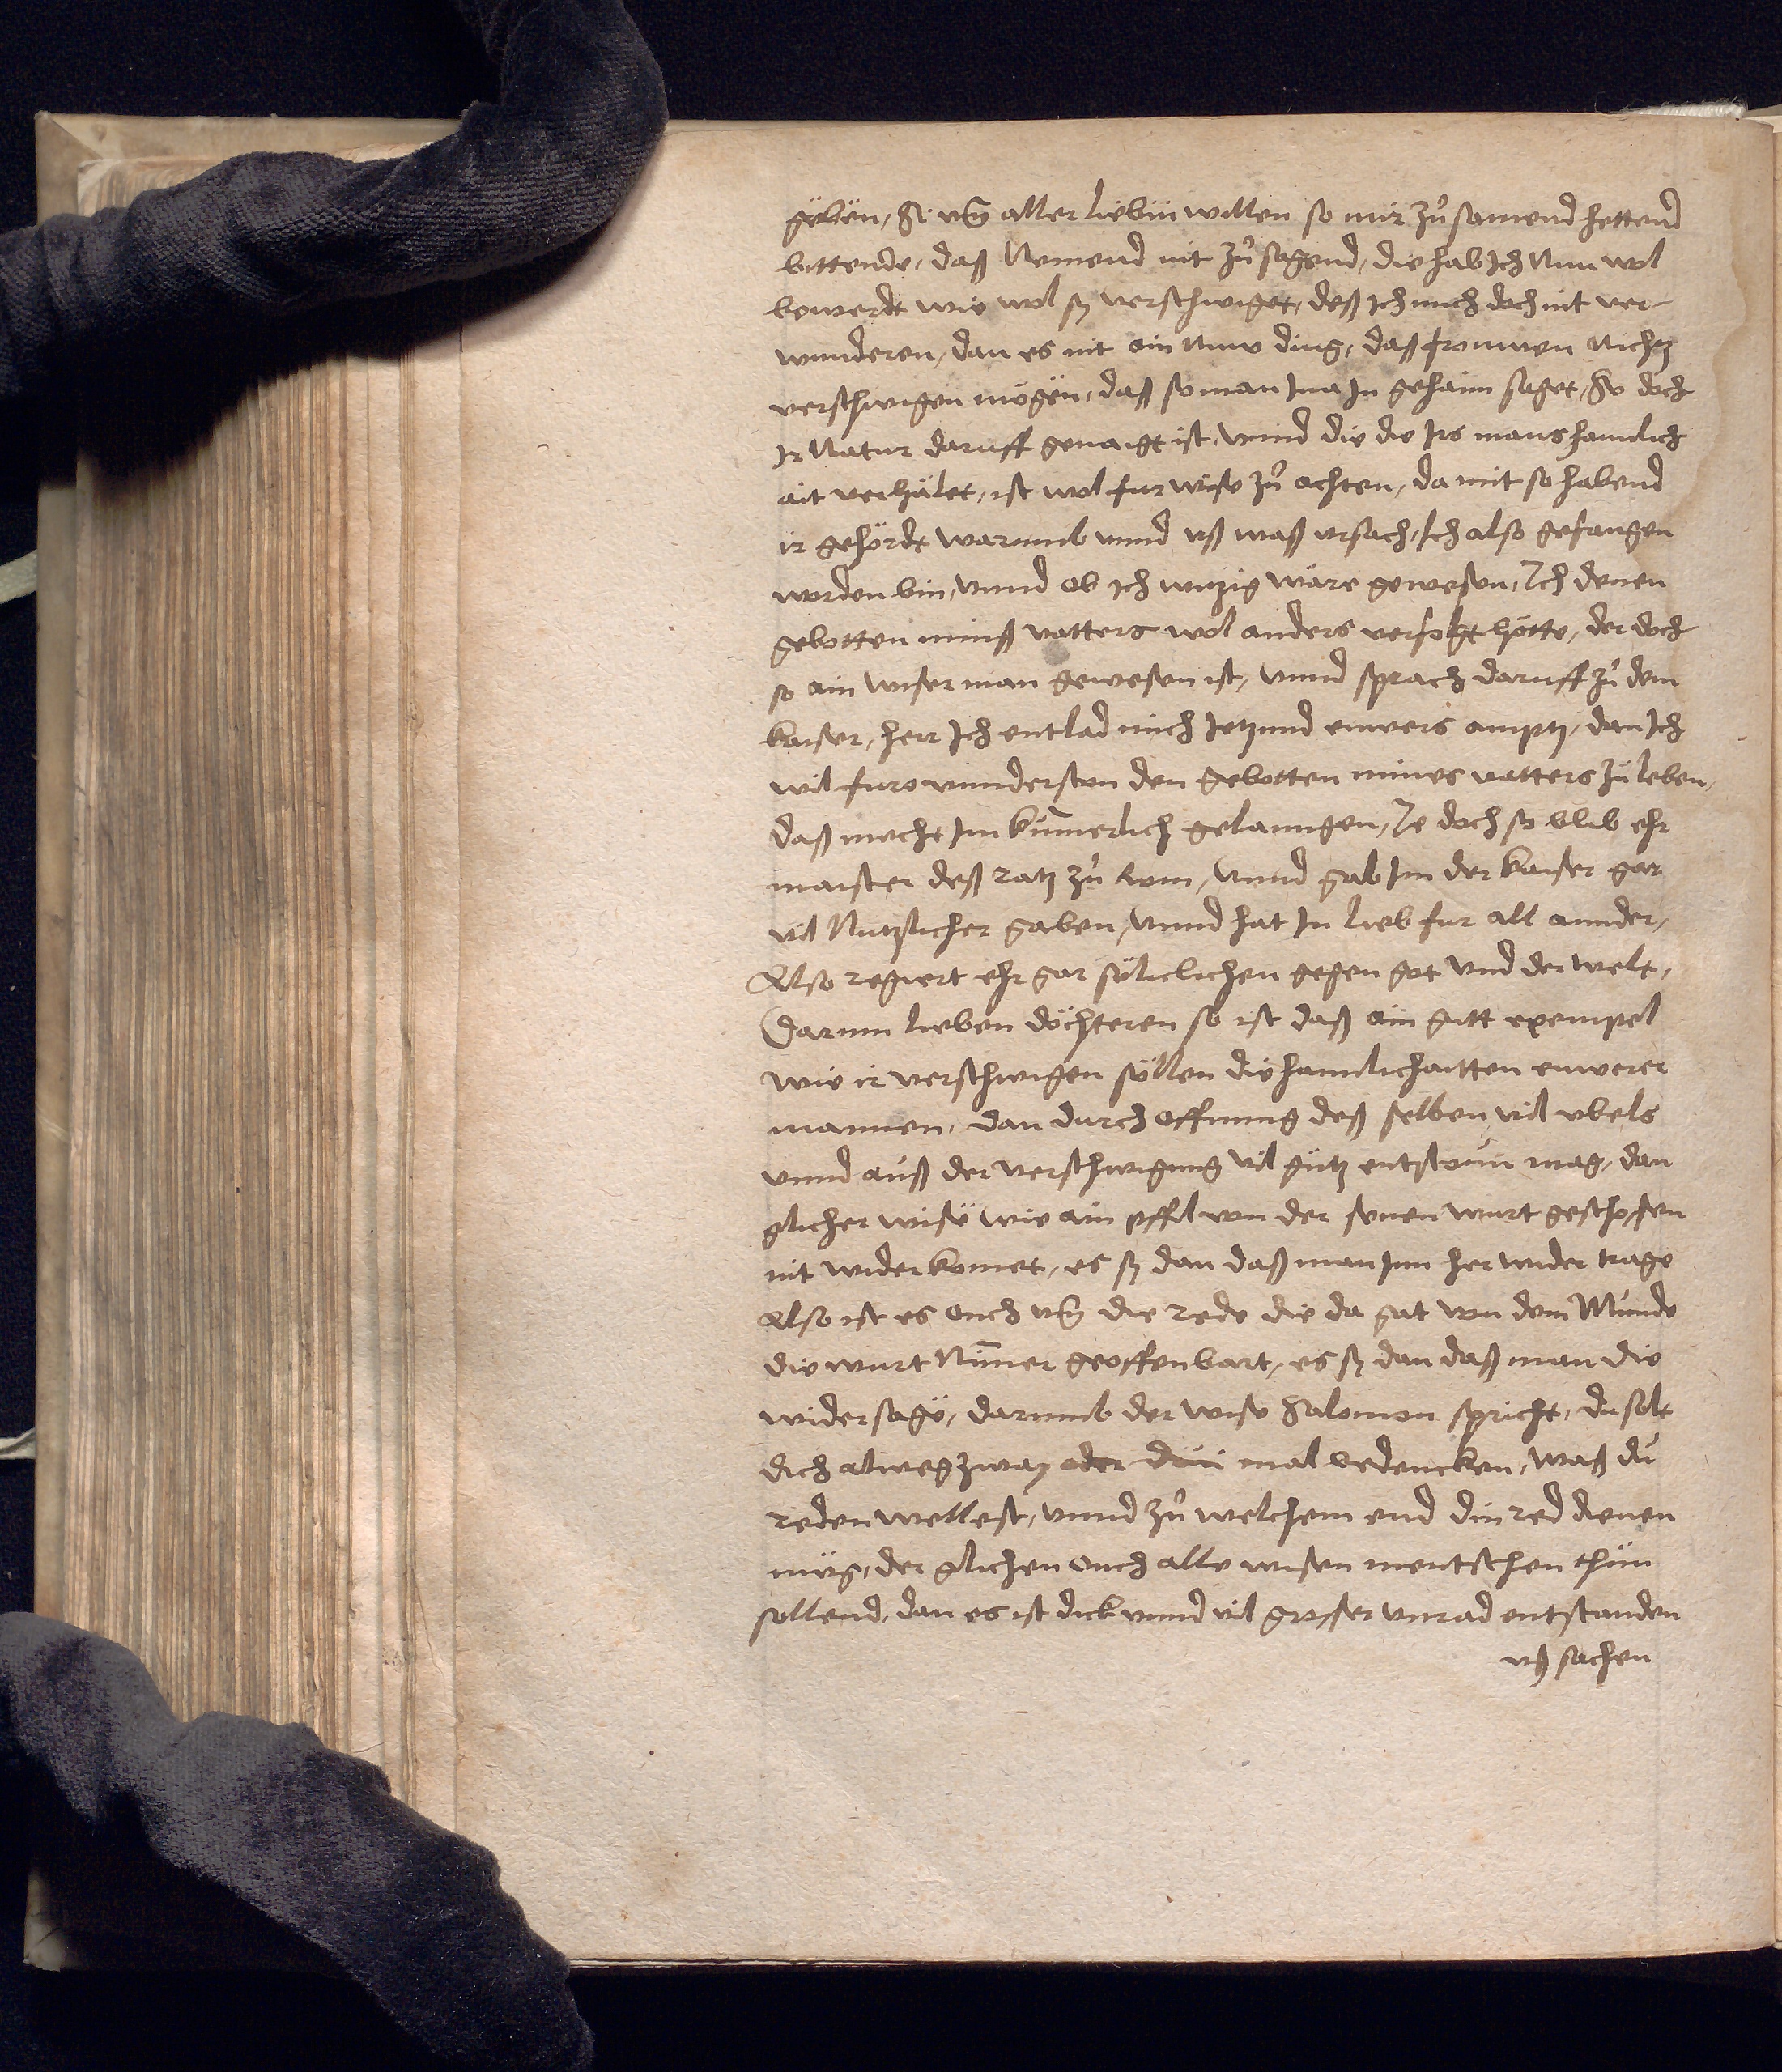 geben, Si um aller liebin willen so mir zů samend hettend
bittende, daß Nemend nit zů sagend, die hab Ich Nun wol
bewerdt wie wol sy verschwiget, deß Ich mich doch nit ver-
wunderen, dan es nit ain Nuw ding, daß frouwen Nichtz
verschwigen mögen, daß so man Ina In gehaim saget, So doch
Ir Natur daruff genaigt ist, vnnd die die Irs mans haimlich
ait verhälet, ist wol fur wise zů achten, da mit so habend
ir gehördt warumb vnnd vß waß vrsach, Ich also gefangen
worden bin, vnnd ob Ich witzig wäre gewesen, Ich denen
gebotten minß vatters wol anders verfolgt hötte, der doch
so ain wiser man gewesen ist, vnnd sprach daruff zů dem
kaiser, herr Ich entlad mich Ietzund euwers amptz, dan Ich
wil furo vnnderston den gebotten mines vatters zů leben,
daß mecht Im kümerlich gelanngen, Je doch so blib ehr
maister deß ratz zů Rom, vnnd gab Im der kaiser gar
vil Nutzlicher gaben, vnnd hat In lieb fur all annder,
Also regiert ehr gar säliclichen gegen got vnd der welt,
Darum lieben döchteren so ist daß ain gutt exempel
wie ir verschwigen söllen die haimlichaitten euwerer
mannen, dan durch offnung deß selben vil vbels
vnnd auß der verschwigung vil gutz entston mag, dan
glicher wise wie ain pffil von der senen wurt geschosen
nit wider komet, es sy dan daß man Inn her wider trage
Also ist es ouch um die rede die da gat von dem Munde
die wurt Nimer geoffenbart, es sy dan daß man die
wider sage, darumb der wise Salomon spricht, du solt
dich alweg zway oder drü mal bedencken, waß du
reden wellest, vnnd zů welchem end din red dienen
müg, der glichen ouch alle wisen mentschen thun
sollend, dan es ist dick vnnd vil grosser vnrad entstanden
vß sachen